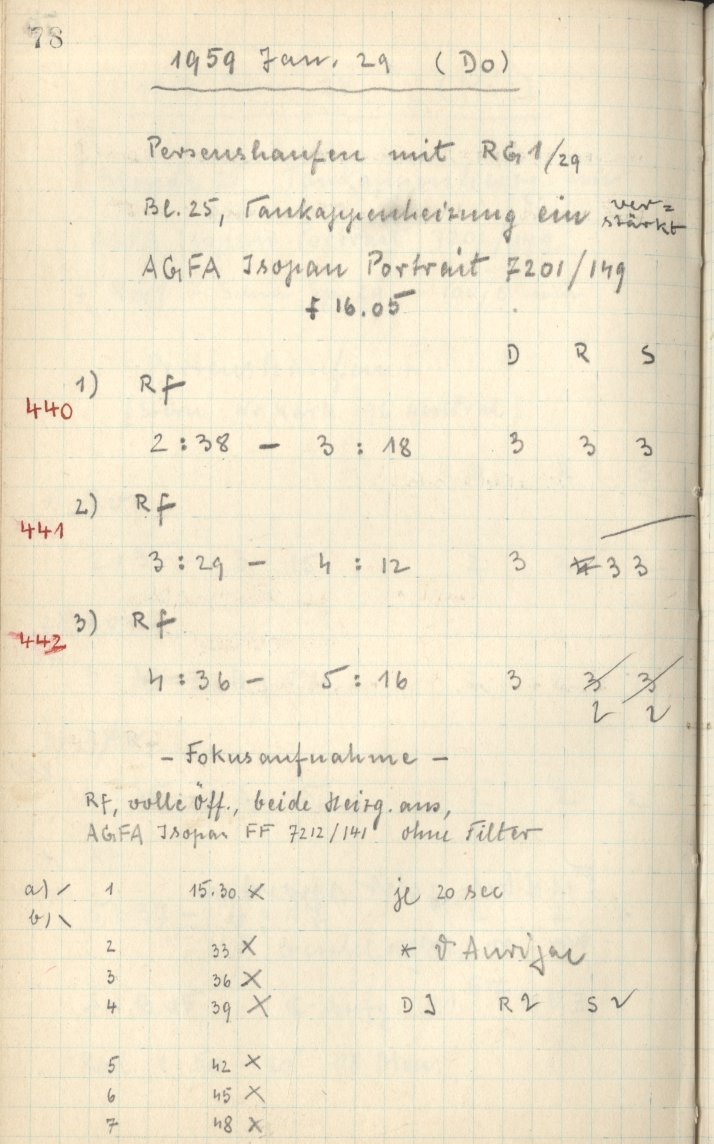 78
1959 Jan. 29 (Do)
Perseushaufen mit RG1/29
Bl. 25, Taukappenheizung ein ver=
stärkt
AGFA Isopan Portrait 7201/149
f 16.05
D R S
1) Rf
440
2 : 38 – 3 : 18 3 3 3
2) Rf
441
3 : 29 – 4 : 12 3 3 3
3) Rf
442
4 : 36 – 5 : 16 3 3 3
2 2
– Fokusaufnahme –
Rf, volle Öff., beide Heizg. aus,
AGFA Isopan FF 7212/141 ohne Filter
a) 1 15.30 × je 20 sec
b)
2 33 × * ϑ Aurigae
3 36 ×
4 39 × D 3 R 2 S 2
5 42 ×
6 45 ×
7 48 ×